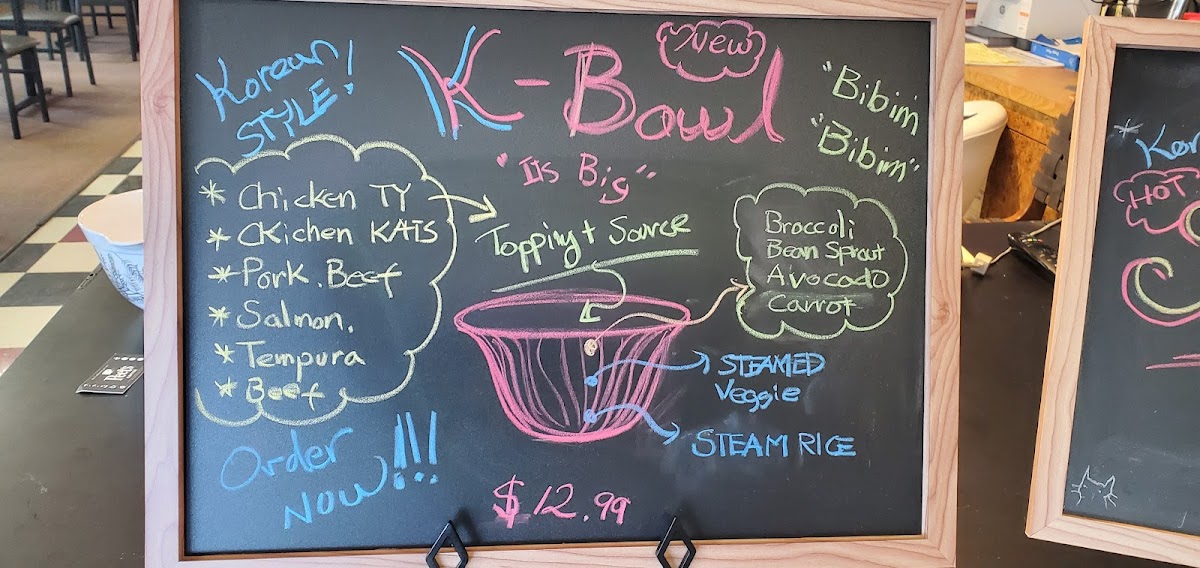 Korean
STYLE!
K-Bowl
New
"Bibim
"Bibim"
"Its Big"
* Chicken TY
* CKichen KATS
* Pork. Beef
* Salmon.
* Tempura
* Beef
Topping + Source
Broccoli
Bean Sprout
Avocado
Carrot
STEAMED
Veggie
STEAM RICE
Order
NOW!!!
$12.99
* Kor
HOT